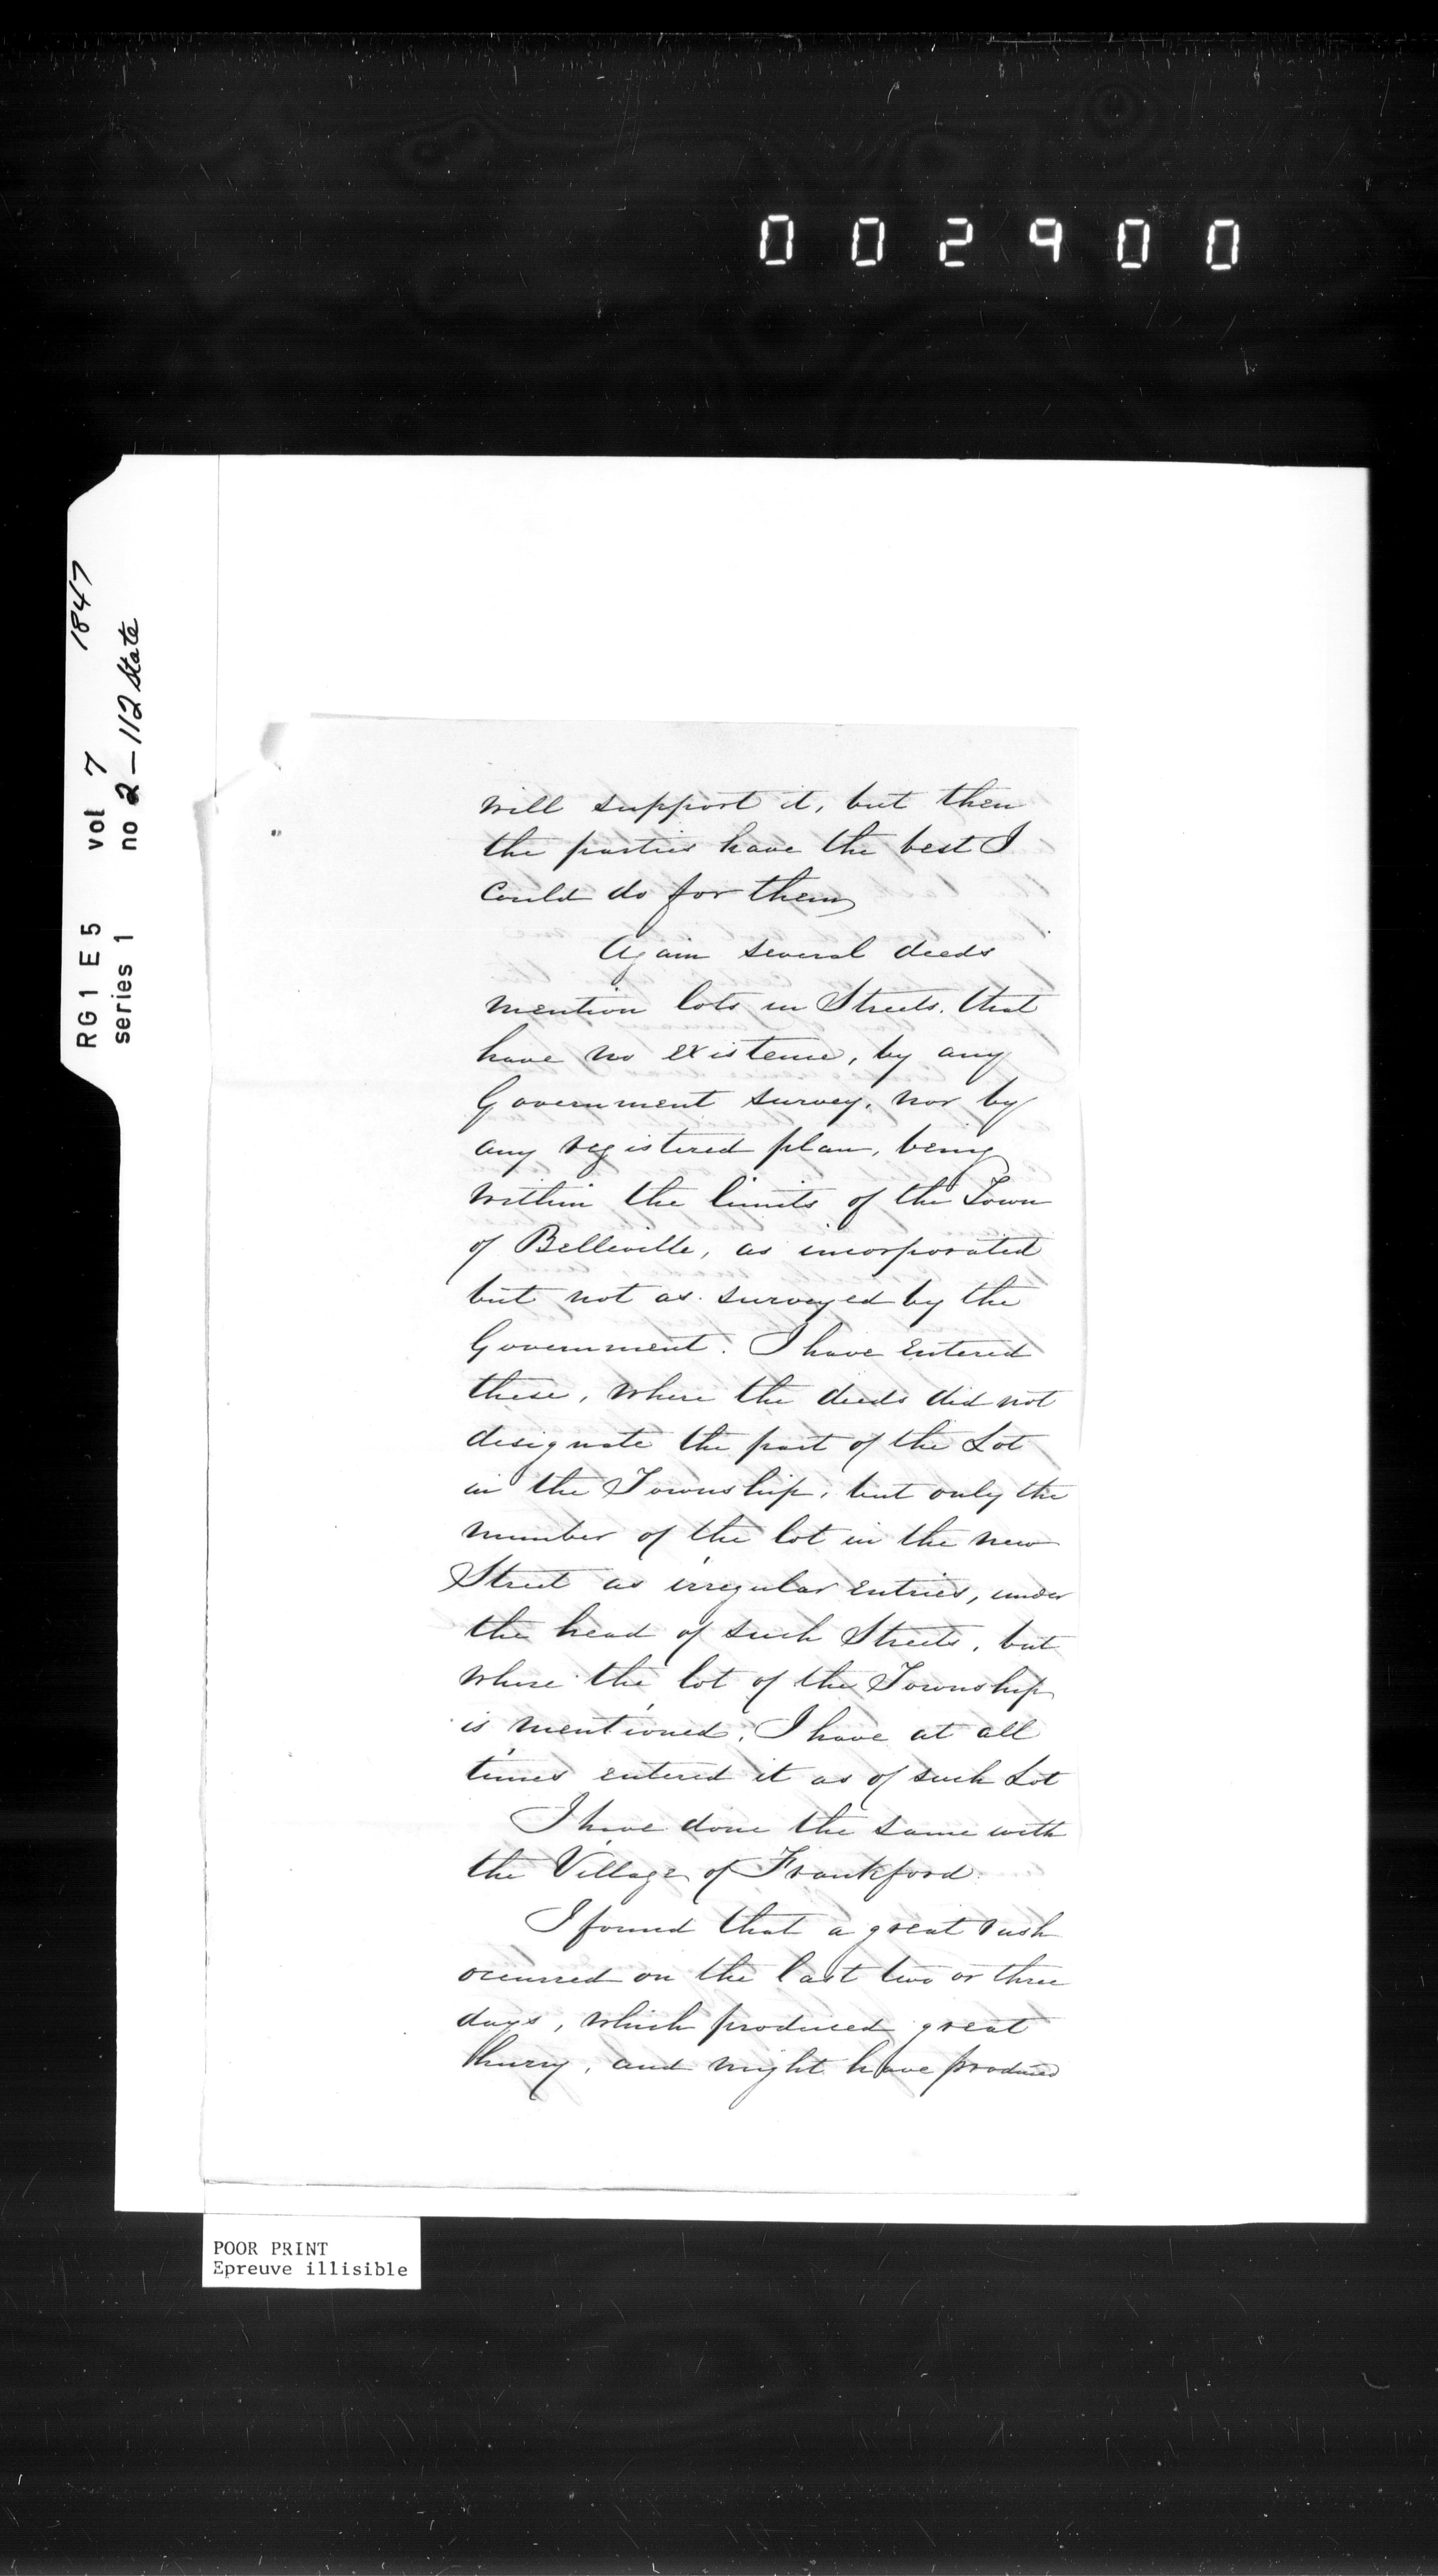 002900
RG1 E5 vol 7 1847
series 1 no 2-112 State
will support it, but then
the parties have the best I
could do for them
Again several deeds
mention lots in Streets, that
have no existence, by any
Government survey, nor by
any registered plan, being
within the limits of the Town
of Belleville, as incorporated
but not as surveyed by the
Government. I have entered
these, where the deeds did not
designate the part of the Lot
in the Township, but only the
number of the lot in the new
Street as irregular entries, under
the head of such Streets, but
where the lot of the Township
is mentioned, I have at all
times entered it as of such Lot
I have done the same with
the Village of Frankford.
I found that a great rush
occurred on the last two or three
days, which produced great
hurry, and might have produced
POOR PRINT
Epreuve illisible